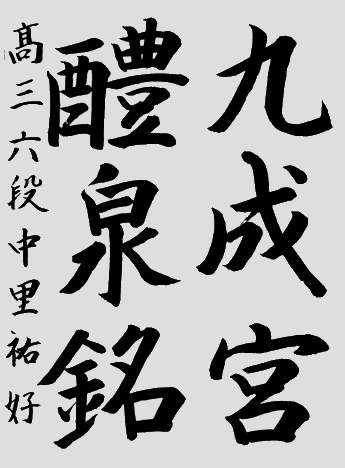 九成宮
醴泉銘
髙三六段中里祐好